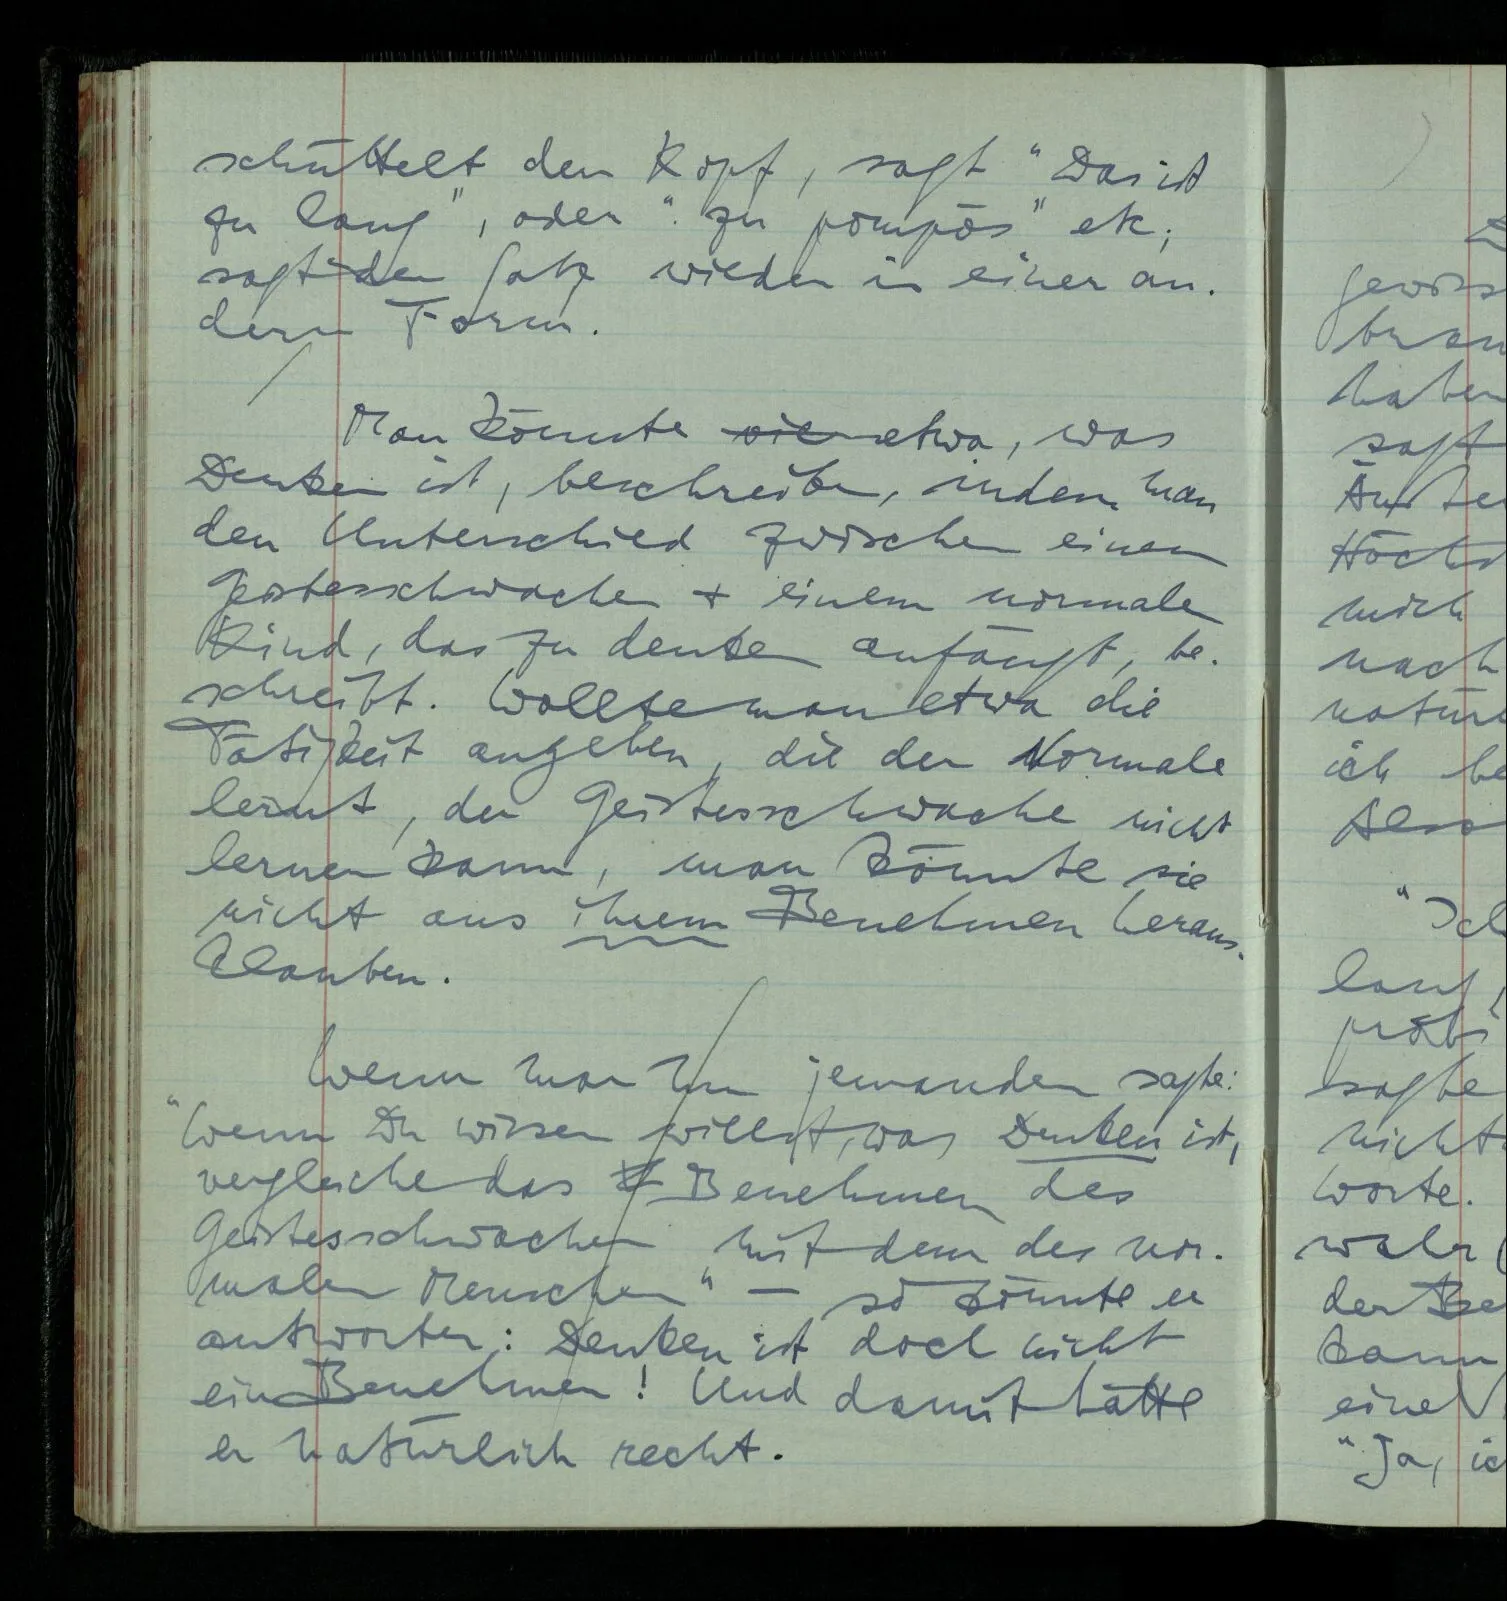 schüttelt den Kopf, sagt "Das ist
zu lang", oder "zu pompös" etc;
sagt den Satz wieder in einer an-
dern Form.
Man könnte etwa, was
Denken ist, beschreiben, indem man
den Unterschied zwischen einem
Geistesschwachen + einem normalen
Kind, das zu denken anfängt, be-
schreibt. Wollte man etwa die
Tätigkeit angeben, die der Normale
lernt, der Geistesschwache nicht
lernen kann, man könnte sie
nicht aus ihrem Benehmen heraus-
klauben.
Wenn man nun jemandem sagte:
"Wenn Du wissen willst, was Denken ist,
vergleiche das Benehmen des
Geistesschwachen mit dem des nor-
malen Menschen" — so könnte er
antworten: Denken ist doch nicht
ein Benehmen! Und damit hätte
er natürlich recht.
gewiss
haben
sagt
mich
nach
natür
ich be
"Ich
lang,
probi
sagte
nicht
Worte.
wahr (
der Be
kann
eine
"Ja, ic